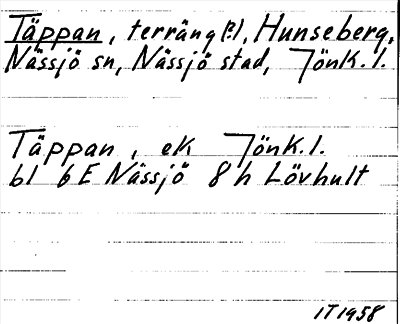 Täppan, terräng(?), Hunseberg,
Nässjö sn, Nässjö stad, Jönk.l.
Täppan, ek Jönk.l.
bl 6E Nässjö 8h Lövhult
IT1958